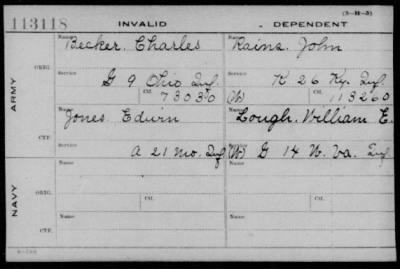 (3-M-3)
113118 INVALID DEPENDENT
ARMY
ORIG.
Name Becker, Charles Name Rains, John
Service G 9 Ohio Inf. Service K 26 Ky. Inf.
Ctf. 73030 (W) Ctf. 113260
CTF.
Name Jones, Edwin Name Lough, William E.
Service A 21 Mo. Inf. Service (W) G 14 W. Va. Inf.
NAVY
ORIG.
Name Name
Service Ctf. Service Ctf.
CTF.
Name Name
Service Service